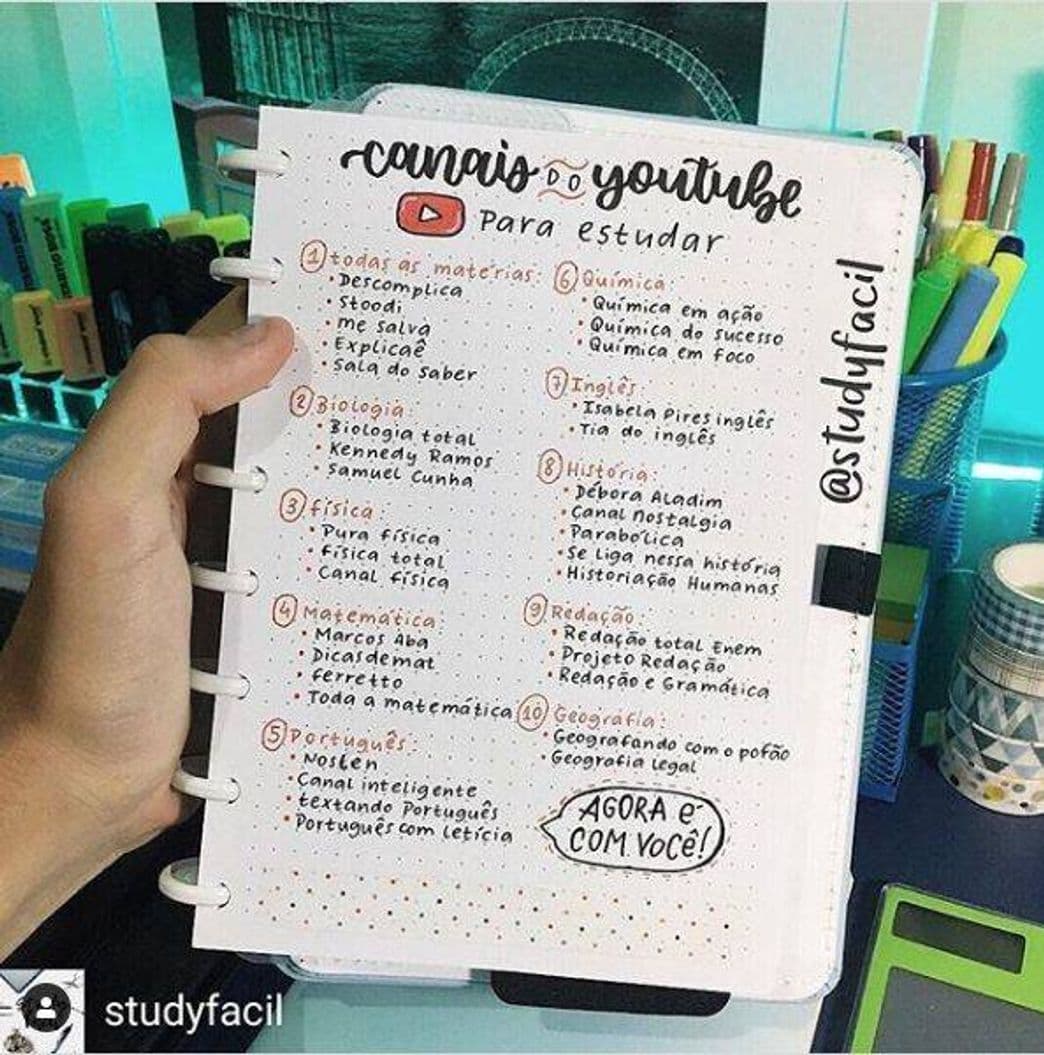 canais do youtube
Para estudar
1 todas as matérias:
• Descomplica
• Stoodi
• me salva
• Explicaê
• Sala do saber
2 Biologia:
• Biologia total
• Kennedy Ramos
• Samuel Cunha
3 física:
• Pura física
• física total
• Canal física
4 Matemática:
• Marcos Aba
• Dicasdemat
• ferretto
• Toda a matemática
5 Português:
• Noslen
• Canal inteligente
• textando Português
• Português com letícia
6 Química:
• Química em ação
• Química do sucesso
• Química em foco
7 Inglês:
• Isabela Pires inglês
• Tia do inglês
8 História:
• Débora Aladim
• Canal nostalgia
• Parabólica
• Se liga nessa história
• Historiação Humanas
9 Redação:
• Redação total Enem
• Projeto Redação
• Redação e Gramática
10 Geografia:
• Geografando com o pofão
• Geografia legal
AGORA É
COM VOCÊ!
@studyfacil
studyfacil